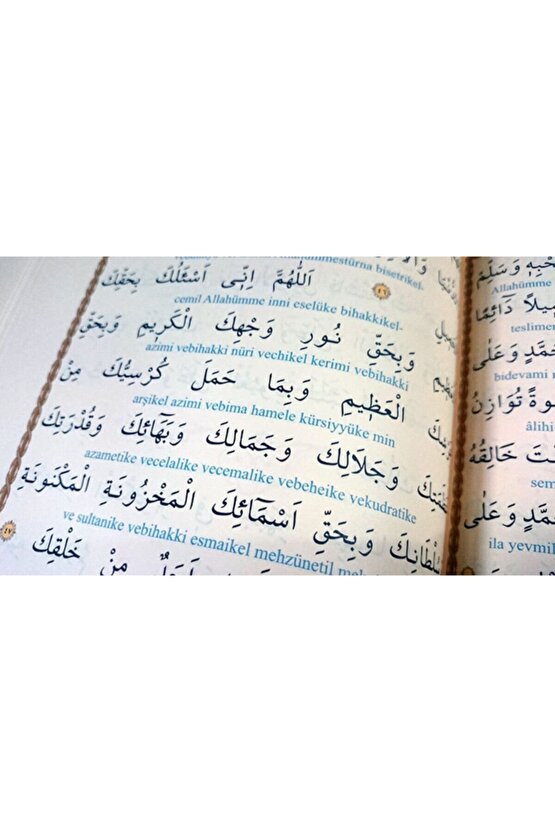 bisetrikel-
اَللّٰهُمَّ اِنّٖى اَسْئَلُكَ بِحَقِّكَ
cemil Allahümme inni eselüke bihakkikel-
وَبِحَقِّ نُورِ وَجْهِكَ الْكَرِيمِ وَبِحَقِّ
azimi vebihakki nûri vechikel kerimi vebihakki
الْعَظِيمِ وَبِمَا حَمَلَ كُرْسِيُّكَ مِنْ
arşikel azimi vebima hamele kürsiyyüke min
وَجَلَالِكَ وَجَمَالِكَ وَبَهَائِكَ وَقُدْرَتِكَ
azametike vecelalike vecemalike vebeheike vekudratike
وَبِحَقِّ اَسْمَائِكَ الْمَخْزُونَةِ الْمَكْنُونَةِ
ve sultanike vebihakki esmaikel mehzünetil
مِنْ خَلْقِكَ
وَسَلِّمْ
Allahümme
دَائِمًا
teslimen
وَعَلٰى
bidevami
تُوَازِنُ
âlihi
خَالِقُهُ
sem
وَعَلٰى
ila yevmil